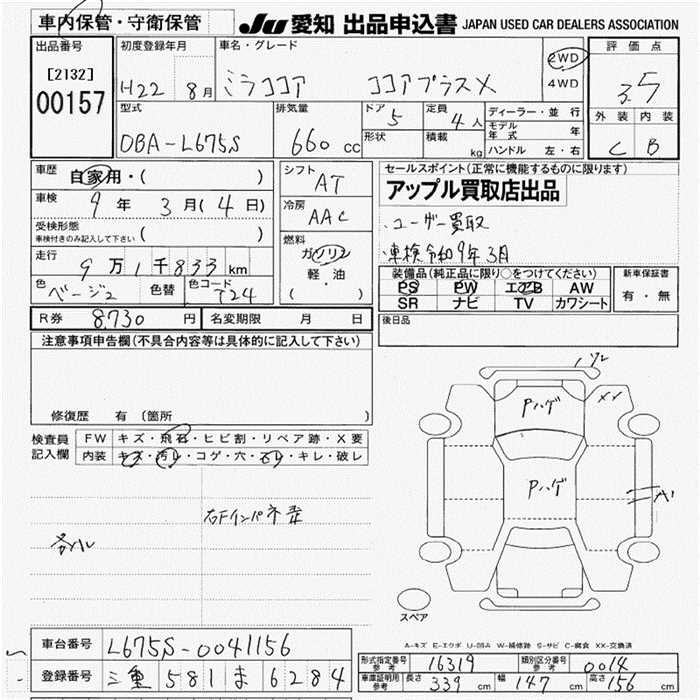 車内保管・守衛保管
JU 愛知 出品申込書 JAPAN USED CAR DEALERS ASSOCIATION
出品番号
[2132]
00157
初度登録年月
H22 8月
車名・グレード
ミラココア ココアプラスX
2WD
4WD
評価点
3.5
外装 内装
C B
型式
DBA-L675S
排気量
660 cc
ドア 5
形状
定員 4人
積載 kg
ディーラー・並行
モデル年式 年
ハンドル 左・右
車歴 自家用・( )
車検 9年 3月(4日)
受検形態
車検付きのみ記入して下さい ( )
走行 9万1千833km
色 ベージュ 色替 色コード T24
シフト AT
冷房 AAC
燃料
ガソリン
軽・油
( )
セールスポイント(正常に機能するものに限ります)
アップル買取店出品
・ユーザー買取
・車検令和9年3月
装備品(純正品に限り○をつけてください)
PS PW エアB AW
SR ナビ TV カワシート
新車保証書
有・無
R券 8,730円 名変期限 月 日
後日品
注意事項申告欄(不具合内容等は具体的に記入して下さい)
修復歴 有(箇所 )
検査員記入欄
FW キズ・飛石・ヒビ割・リペア跡・X要
内装 キズ・汚れ・コゲ・穴・スレ・キレ・破レ
右Fインパネ歪
Pハゲ
XX
Pハゲ
スペア
A-キズ E-エクボ U-凹み W-補修跡 S-サビ C-腐食 XX-交換済
車台番号 L675S-0041156
登録番号 三重 581 ま 6284
形式指定番号 参考 16319 類別区分番号 参考 0014
車庫証明用 参考 長さ 339cm 幅 147cm 高さ 156cm